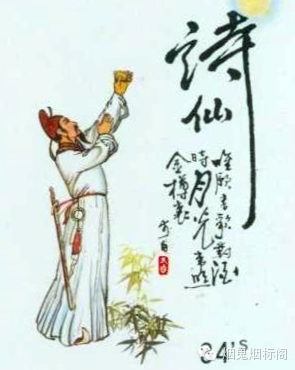 詩仙
唯願當歌對酒
時月光常照
金樽裏
李白
84'S
烟鬼烟标阁